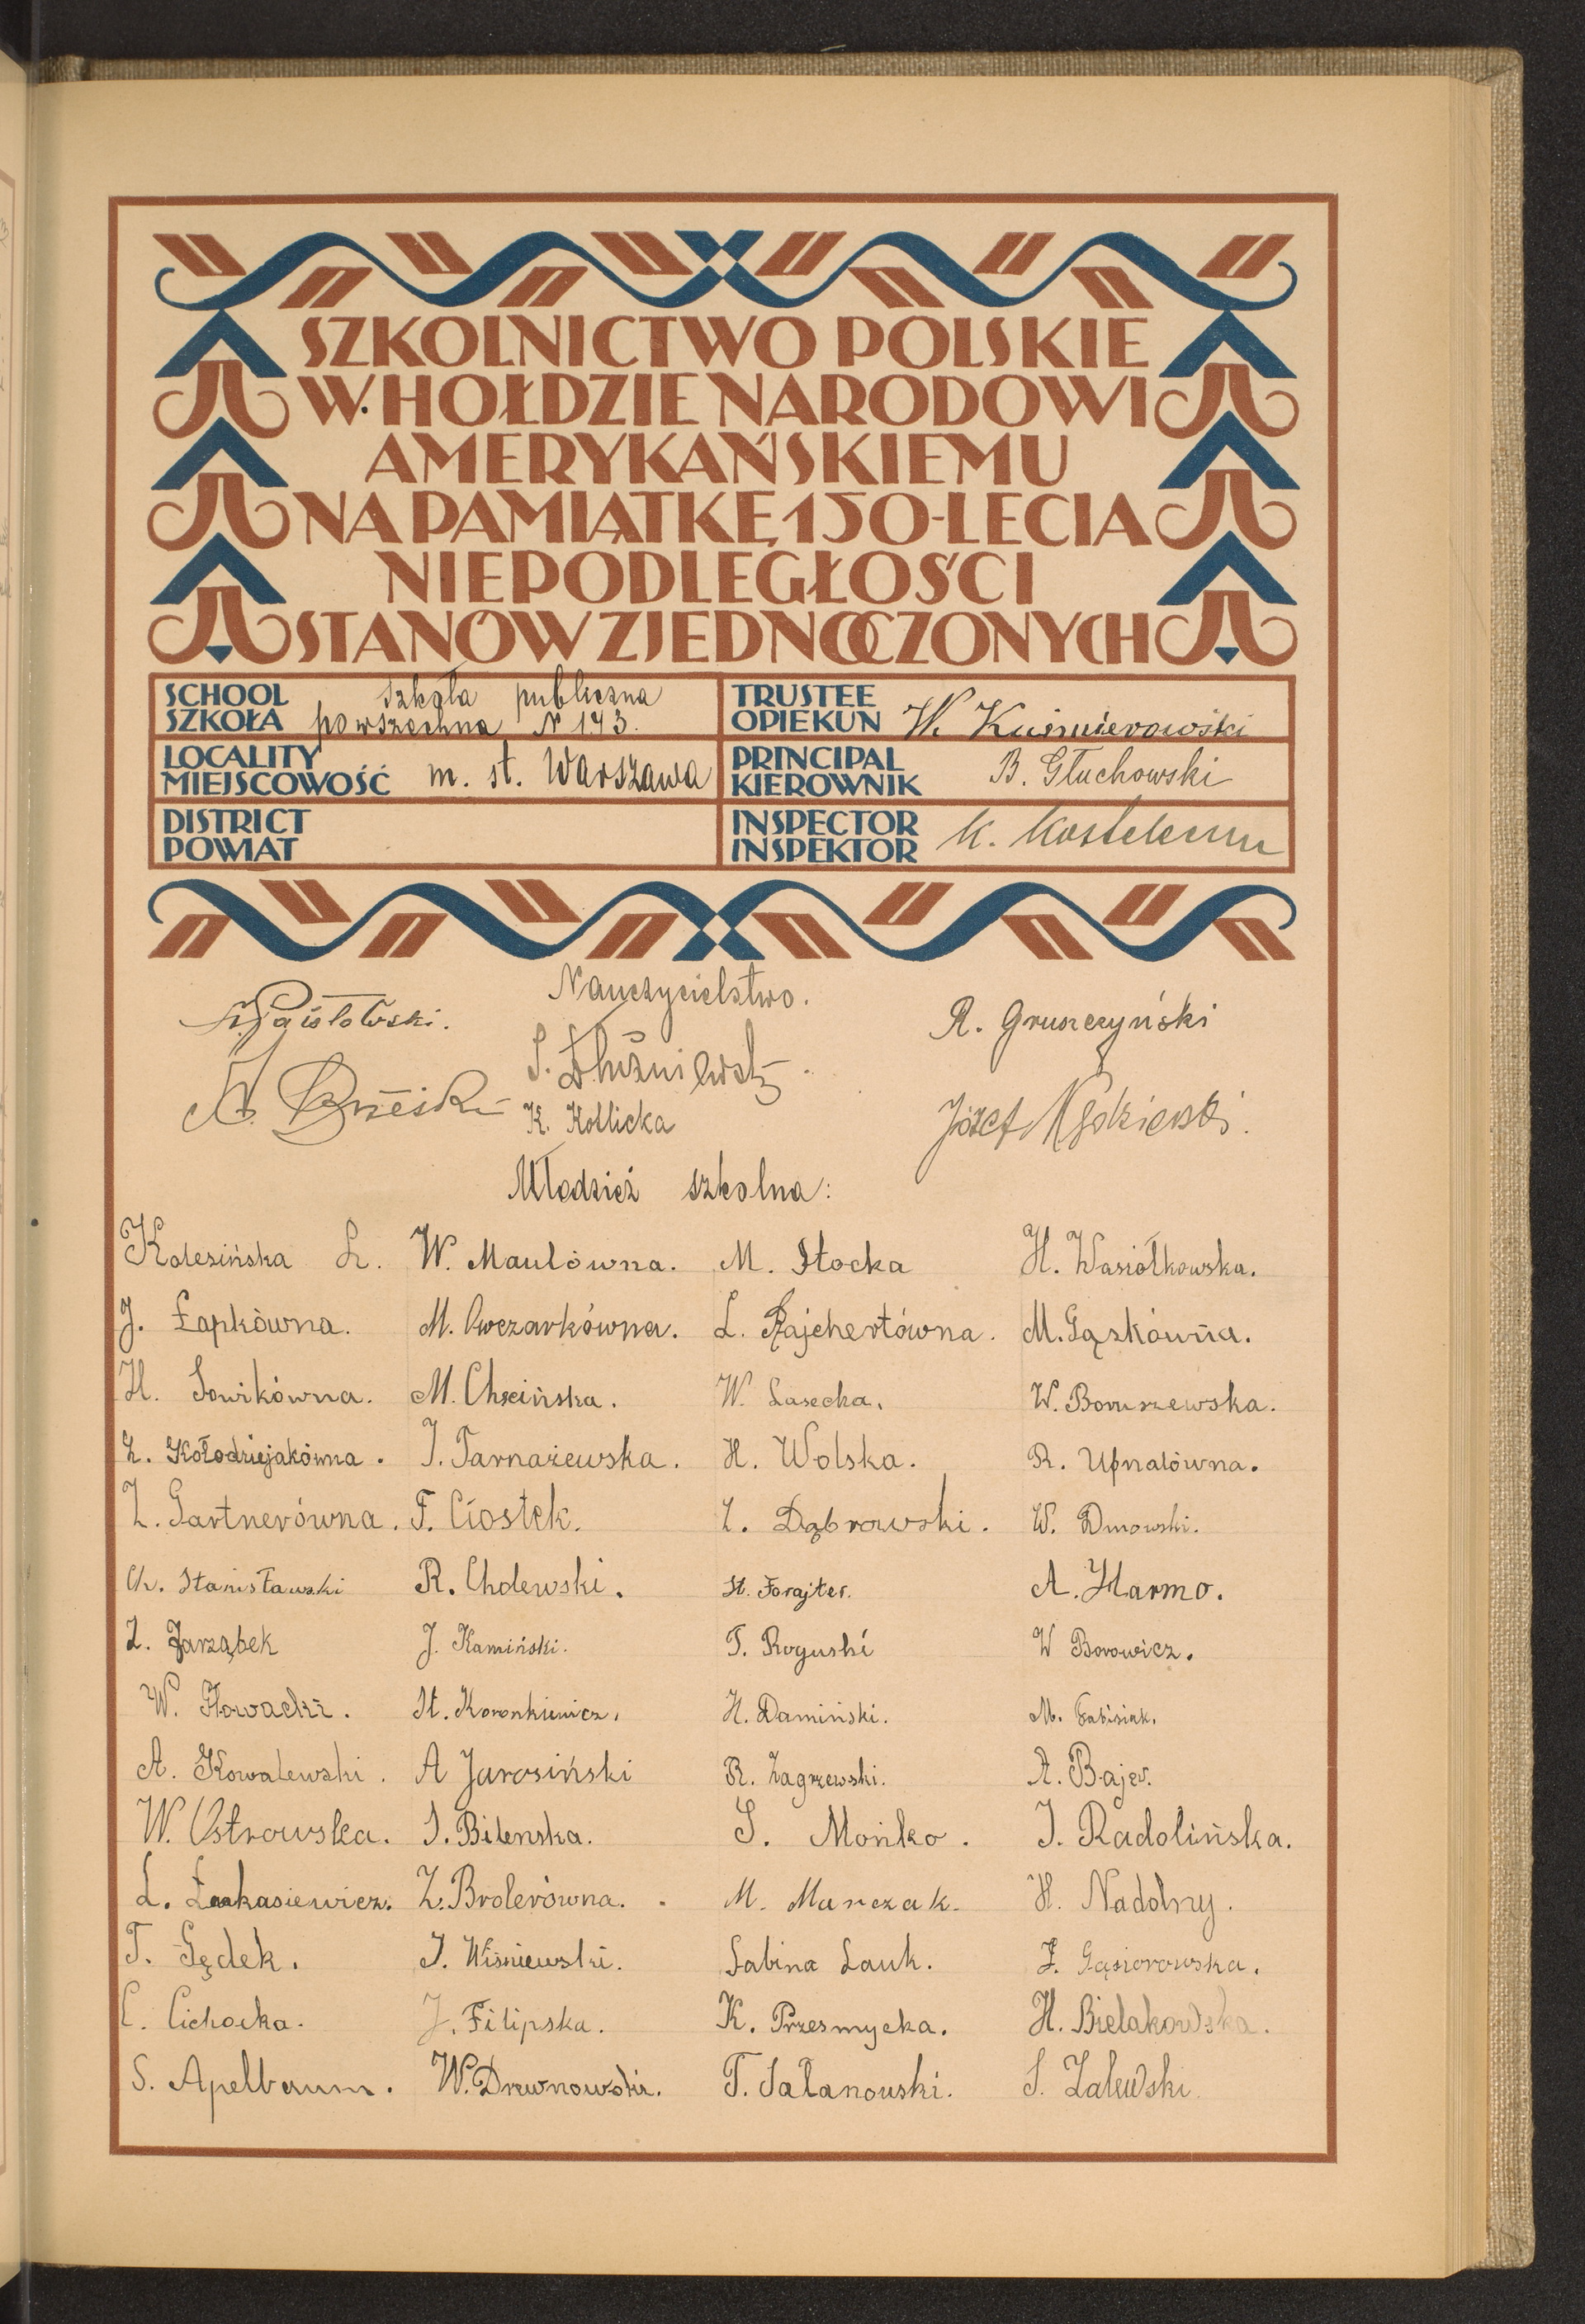 SZKOLNICTWO POLSKIE
W HOŁDZIE NARODOWI
AMERYKAŃSKIEMU
NA PAMIĄTKĘ 150-LECIA
NIEPODLEGŁOŚCI
STANÓW ZJEDNOCZONYCH
SCHOOL
SZKOŁA
szkoła publiczna
powszechna N 143.
TRUSTEE
OPIEKUN
W. Kuśmierowski
LOCALITY
MIEJSCOWOŚĆ
m. st. Warszawa
PRINCIPAL
KIEROWNIK
B. Głuchowski
DISTRICT
POWIAT
INSPECTOR
INSPEKTOR
K.
Nauczycielstwo.
R. Gruszczyński
S. Dłużniewski.
K. Kollicka
Józef
Młodzież szkolna:
Kolesińska L. W. Maulówna. M. Stocka H. Wasiołkowska.
J. Łapkówna. M. Owczarkówna. L. Rajchertówna. M. Gąskówna.
H. Sowikówna. M. Chxińska. W. Lasecka. W. Boruszewska.
Z. Kołodziejakówna. J. Tarnażewska. H. Wolska. R. Upnalówna.
Z. Gartnerówna. F. Ciostek. Z. Dąbrowski. W. Dmowski.
Ch. Stanisławski R. Cholewski. St. Forajter. A. Harmo.
Z. Jarząbek J. Kamiński. T. Roguski W Borowicz.
W. Słowacki. St. Koronkiewicz. H. Damiński. M. Fabisiak.
A. Kowalewski. A Jarosiński R. Zagrzewski. A. Bajer.
W. Ostrowska. S. Bilenska. S. Mońko. J. Radolińska.
L. Łukasiewicz. Z. Brolerówna. M. Marczak. H. Nadolny.
T. Gędek. J. Wiśniewski. Sabina Lauk. Z. Gąsiorowska.
C. Cichocka. J. Filipska. K. Przesmycka. H. Bielakowska.
S. Apelbaum. W. Drewnowski. T. Sałanowski. S. Zalewski.